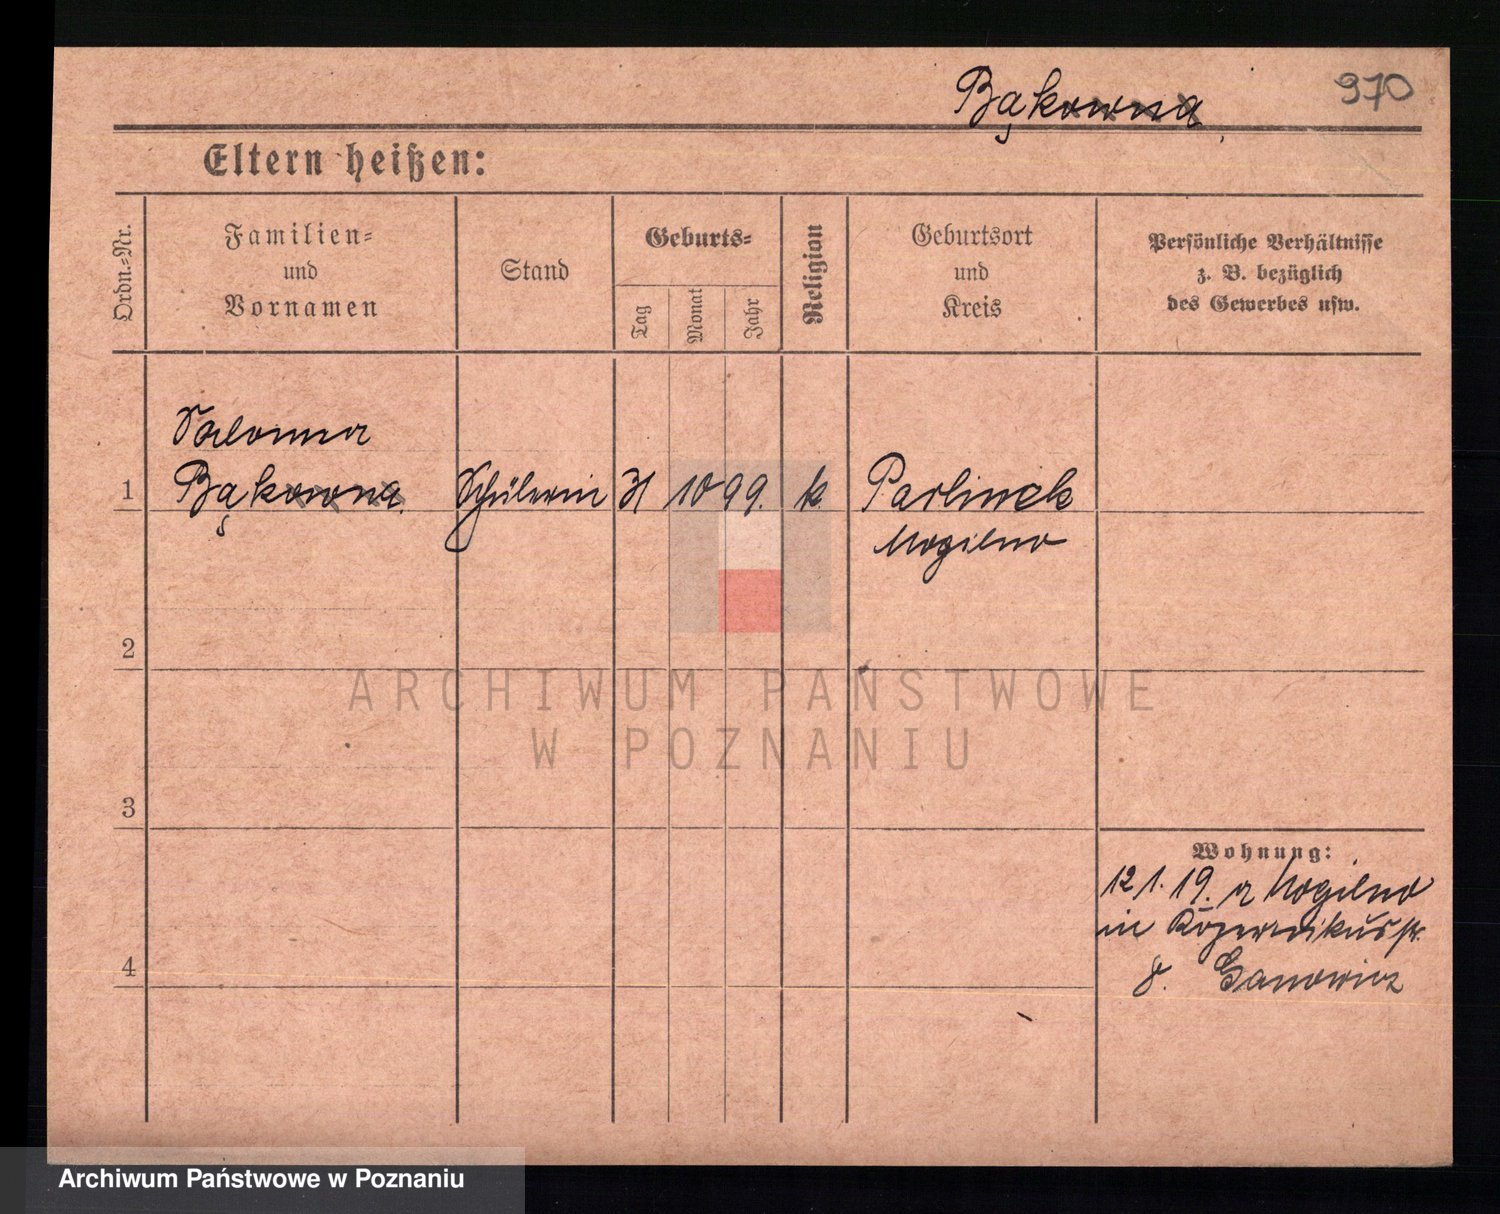 Bąkowna
970
Eltern heißen:
Ordn.-Nr.
Familien-
und
Vornamen
Stand
Geburts-
Tag
Monat
Jahr
Religion
Geburtsort
und
Kreis
Persönliche Verhältnisse
z. B. bezüglich
des Gewerbes usw.
Salomea
1 Bąkowna. Schülerin 31 10 99. k. Parlinek
Mogilno
2
ARCHIWUM PAŃSTWOWE
W POZNANIU
3
Wohnung:
12 1. 19. a Mogilno
in
4
8. Ganowicz
Archiwum Państwowe w Poznaniu